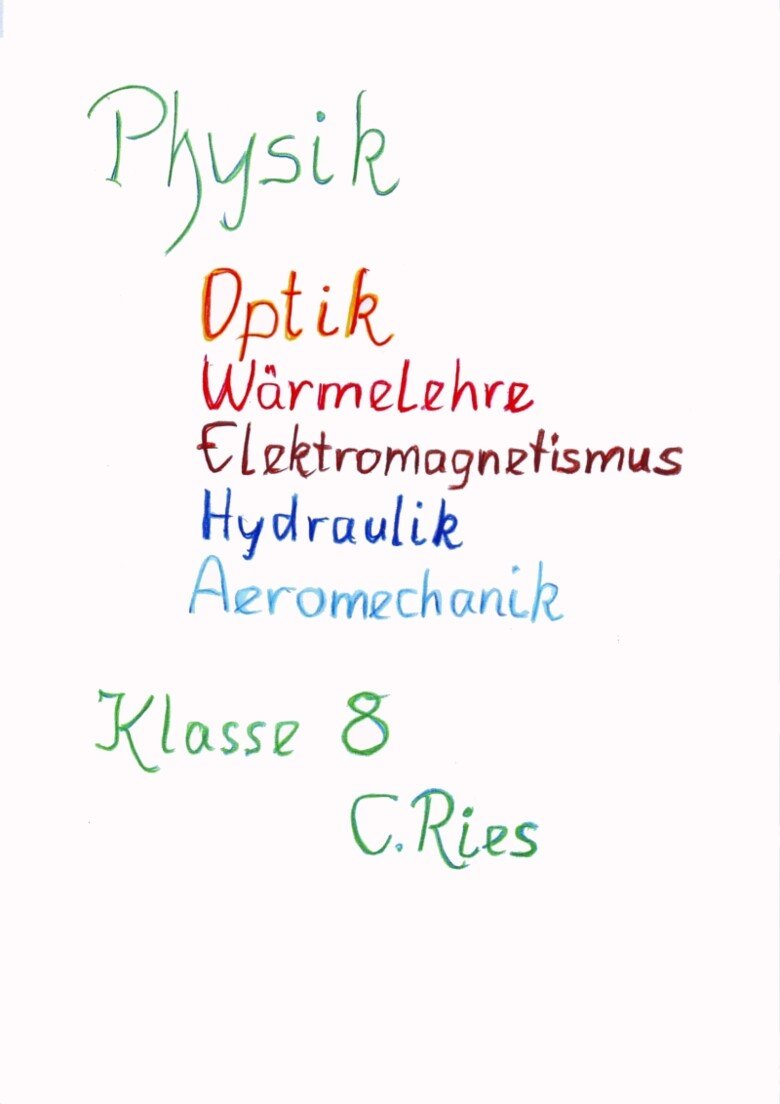 Physik
Optik
Wärmelehre
Elektromagnetismus
Hydraulik
Aeromechanik
Klasse 8
C. Ries